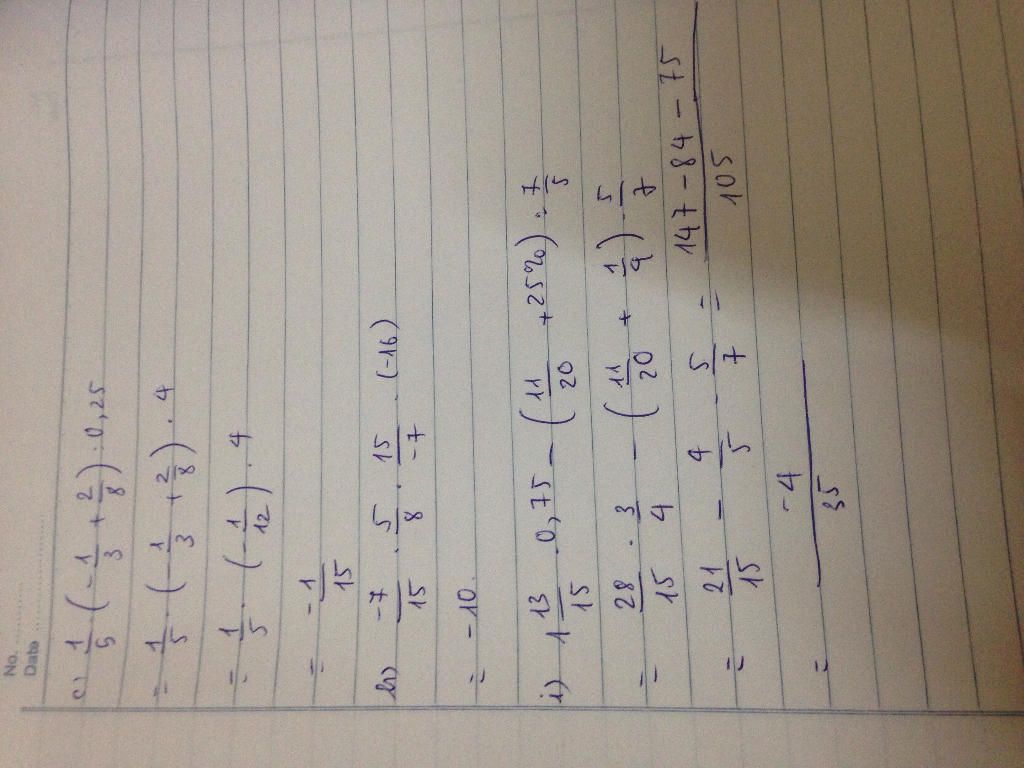 No. ..........
Date ..........
c) 1/5 . (-1/3 + 2/8) : 0,25
= 1/5 . (-1/3 + 2/8) . 4
= 1/5 . (-1/12) . 4
= -1/15
h) -7/15 . 5/8 . 15/-7 . (-16)
= -10.
i) 1 13/15 . 0,75 - (11/20 + 25%) : 7/5
= 28/15 . 3/4 - (11/20 + 1/4) . 5/7
= 21/15 - 4/5 . 5/7 = 147 - 84 - 75/105
= -4/35